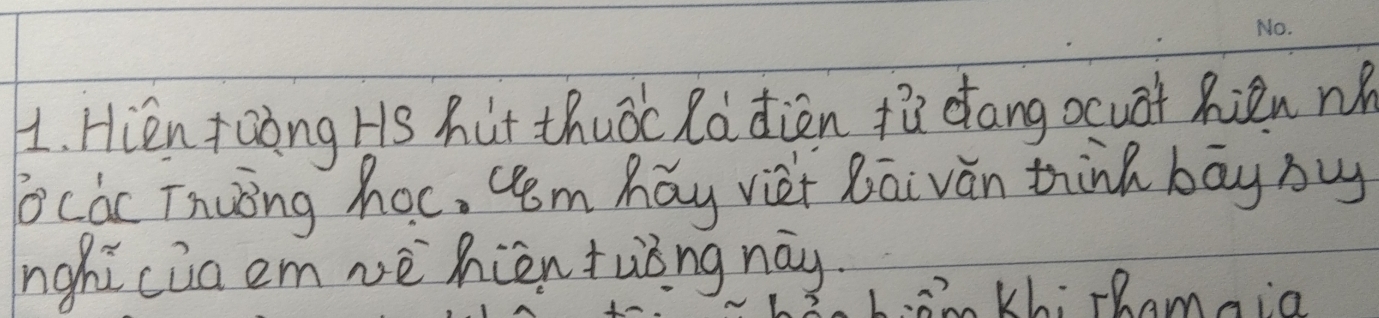 No.
1. Hiện tượng HS hút thuốc lá điện tử đang xuất hiện nh
ở các Trường học. Em hãy viết bài văn trình bày suy
nghĩ của em về hiện tượng này.
khi tham gia